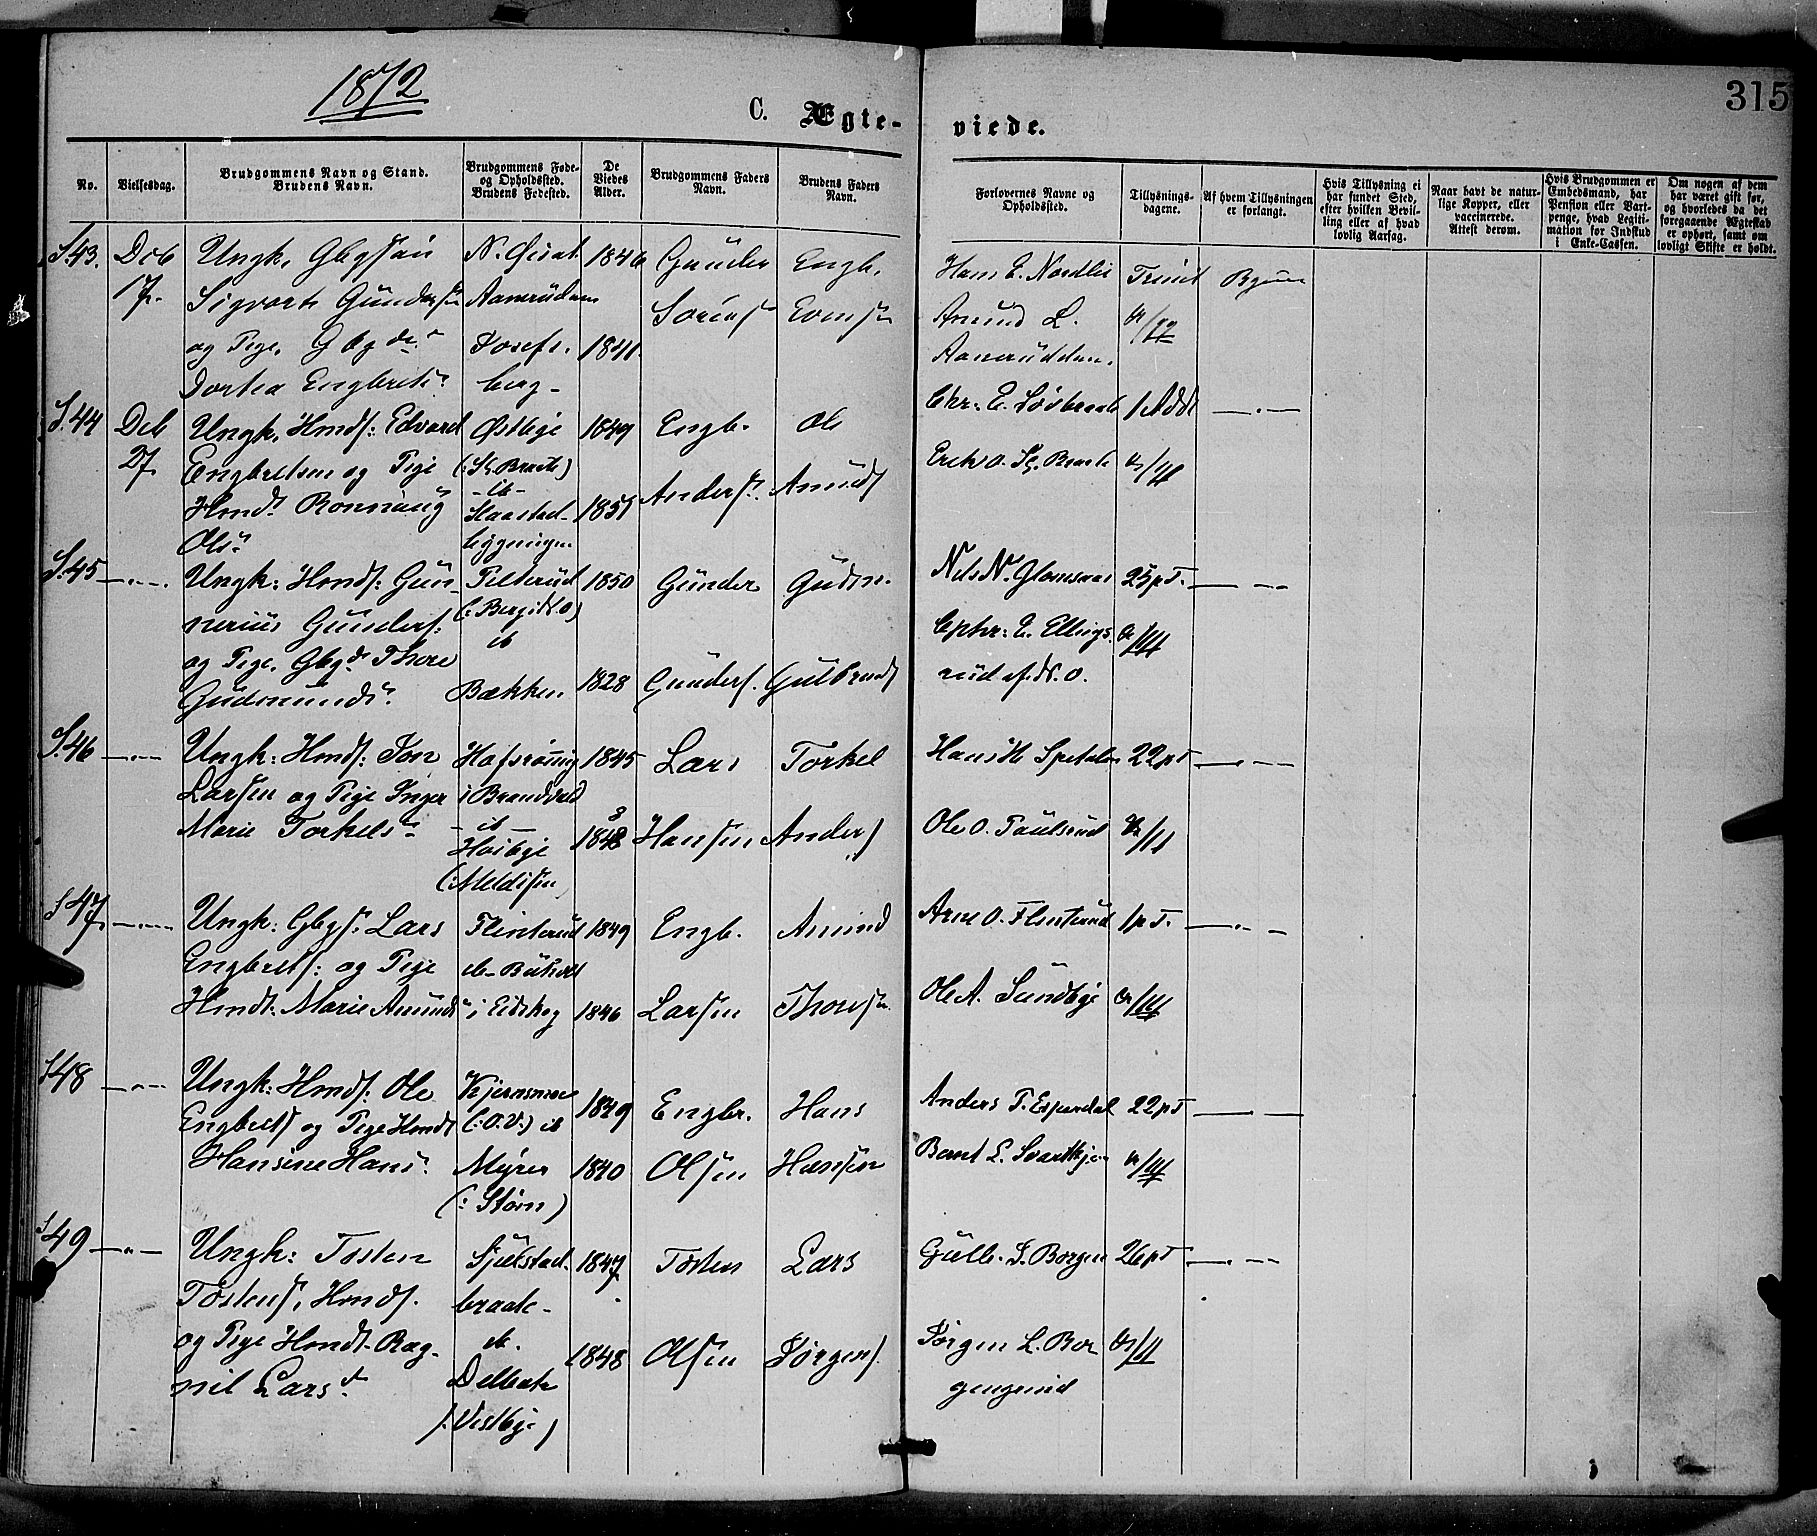 1872
315
C. Ægte-
viede.
No.
Vielsesdag.
Brudgommens Navn og Stand.
Brudens Navn.
Brudgommens Føde-
og Opholdssted.
Brudens Fødested.
De
Viedes
Alder.
Brudgommens Faders
Navn.
Brudens Faders
Navn.
Forlovernes Navne og
Opholdssted.
Tillysnings-
dagene.
Af hvem Tillysningen
er forlangt.
Hvis Tillysning ei
har fundet Sted,
efter hvilken Bevil-
ling eller af hvad
lovlig Aarsag.
Naar havt de natur-
lige Kopper, eller
vaccinerede.
Attest derom.
Hvis Brudgommen er
Embedsmand, har
Pension eller Vart-
penge, hvad Legiti-
mation for Indskud
i Enke-Cassen.
Om nogen af dem
har været gift før,
og hvorledes da det
foregaaende Ægteskab
er ophørt, samt om
lovligt Skifte er holdt.
S.43.
Deb
17.
Ungk. Gbgsøn
Sigvart Gunders
og Pige, Gbgd.
Dortea Engbrets.
Aamruden
Josefs.
berg-
1846
1841.
Gunder
Sorens
Engb.
Evens
Hans E. Nordli
Amund L.
Aamrudden.
Trinit
S.44
Deb
27.
Ungk. Hmds: Edvard
Engbretsen og Pige
Hmd. Ronnaug
Ols.
Østbye
(:S. Braate)
-ib-
Skaastad-
bygningen
1849
1851
Engb.
Anders.
Ole
Amunds
Chr: E. Løvbraate
Erik O. S. Braate
1 Addt
—.—
S.45
—.—.
Ungk: Hmds: Gun-
nerius Gunders:
og Pige, Gbgd. Thore
Gudmunds.
Pelterud
(: Berg
ib
Bækken
1850
1828
Gunder
Gunders.
Gudm.
Gulbrands
Nils N. Glomsaas
Cphr: E. Ellings
rud
25 p T.
—.—
S.46
—.—
Ungk: Hmds: Jon
Larsen og Pige Inger
Marie Torkels.
Hafsrønning
i Brandval
-ib-
Høibye
(:Meldisen
1845
1848
3
Lars
Hansen
Torkel
Anders
Hans H Spetalen
Ole O. Paulsrud
22 p T
/11
—.—
S.47
—.—
Ungk: Gbgs. Lars
Engbrets: og Pige
Hmdt: Marie Amunds
Flinterud
ib-
i Eidskog
1849
1846
Engb.
Larsen
Amund
Thores
Arne O. Flinterud
Ole A. Sundbye
1 p T.
—.—
S.48
—.—
Ungk: Hmds: Ole
Engbrets og Pige Hmdt
Hansine Hans.
Kjernsmoe
(:O.V:) ib
Myrer
(: Støm)
1849
1840
Engbr.
Olsen
Hans
Hansen
Anders T. Espendal
Bernt L. Svartkjern
22 p T
—.—
S.49
—.—
Ungk: Tosten
Tostens, Hmds.
og Pige Hmdt. Rag-
nil Lars.
Sjulstad-
braate-
ib.
(:Vestbye)
1847
1848
Tosten
Olsen
Lars
Jørgens.
Gulb. S. Borgen
Jørgen L. Bor
gengerud
26 p T
/11
—.—